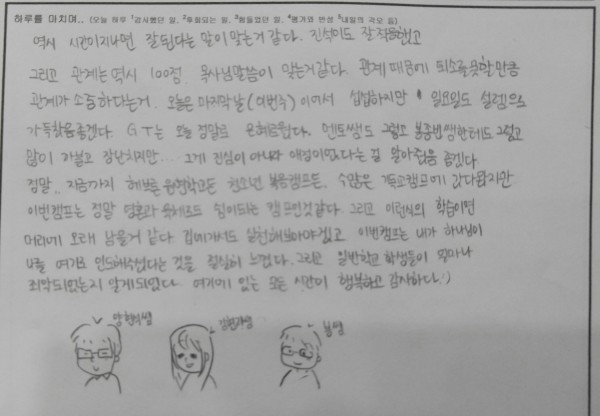 하루를 마치며.. (오늘 하루 ¹감사했던 일, ²후회되는 일, ³힘들었던 일, ⁴평가와 반성 ⁵내일의 각오 등)
역시 시간이지나면 잘 된다는 말이 맞는거 같다. 진석이도 잘 적응했고
그리고 관계는 역시 100점. 목사님말씀이 맞는거같다. 관계 때문에 퇴소를못할만큼
관계가 소중하다는거. 오늘은 마지막날 (이번주) 이여서 섭섭하지만 일요일도 설렘으로
가득찼음좋겠다. GT는 오늘 정말로 은혜로웠다. 멘토쌤도 그렇고 봉종범쌤한테도 그렇고
많이 까불고 장난치지만... 그게 진심이 아니라 애정이였다는걸 알아줬음 좋겠다.
정말.. 지금까지 해브론 원형학교든 청소년 복음캠프든, 수많은 기독교캠프에 갔다왔지만
이번캠프는 정말 영혼과 육체모두 쉼이되는 캠프인것같다. 그리고 이런식의 학습이면
머리에 오래 남을거 같다. 집에가서도 실천해보아야겠고 이번캠프는 내가 하나님이
나를 여기로 인도하셨다는 것을 절실히 느꼈다. 그리고 일반학교 학생들이 얼마나
죄악되있는지 알게되었다. 여기에 있는 모든 시간이 행복하고 감사하다. :)
양현석쌤 김현지쌤 봉쌤